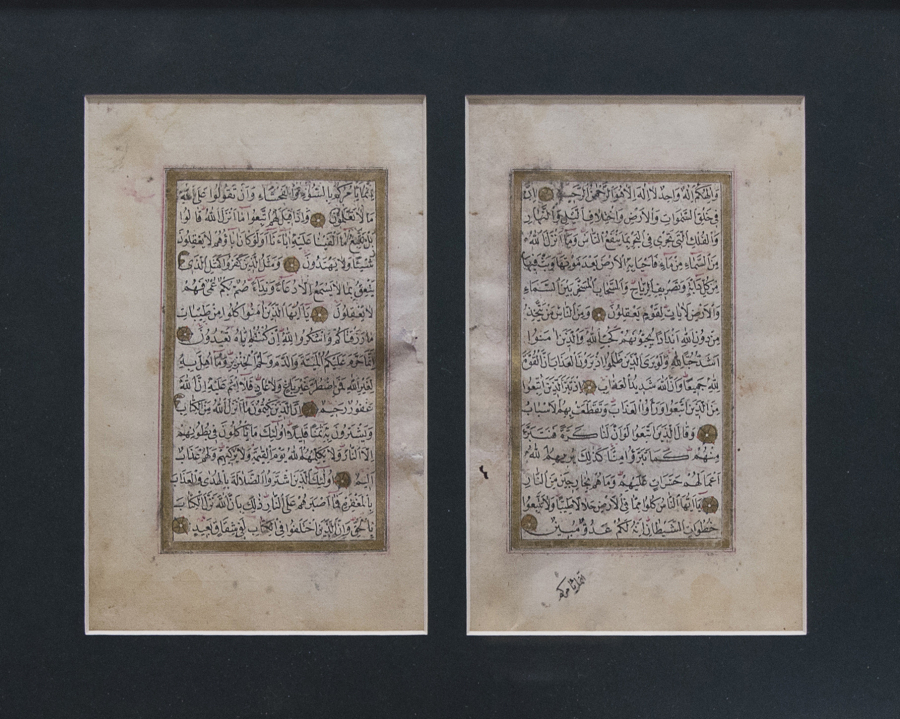 وَاِلٰهُكُمْ اِلٰهٌ وَاحِدٌ لَا اِلٰهَ اِلَّا هُوَ الرَّحْمٰنُ الرَّحِيمُ اِنَّ
فِي خَلْقِ السَّمٰوَاتِ وَالْاَرْضِ وَاخْتِلَافِ الَّيْلِ وَالنَّهَارِ
وَالْفُلْكِ الَّتِي تَجْرِي فِي الْبَحْرِ بِمَا يَنْفَعُ النَّاسَ وَمَا اَنْزَلَ اللهُ
مِنَ السَّمَاءِ مِنْ مَاءٍ فَاَحْيَا بِهِ الْاَرْضَ بَعْدَ مَوْتِهَا وَبَثَّ فِيهَا
مِنْ كُلِّ دَابَّةٍ وَتَصْرِيفِ الرِّيَاحِ وَالسَّحَابِ الْمُسَخَّرِ بَيْنَ السَّمَاءِ
وَالْاَرْضِ لَاٰيَاتٍ لِقَوْمٍ يَعْقِلُونَ وَمِنَ النَّاسِ مَنْ يَتَّخِذُ
مِنْ دُونِ اللهِ اَنْدَادًا يُحِبُّونَهُمْ كَحُبِّ اللهِ وَالَّذِينَ اٰمَنُوا
اَشَدُّ حُبًّا لِلهِ وَلَوْ يَرَى الَّذِينَ ظَلَمُوا اِذْ يَرَوْنَ الْعَذَابَ اَنَّ الْقُوَّةَ
لِلهِ جَمِيعًا وَاَنَّ اللهَ شَدِيدُ الْعَذَابِ اِذْ تَبَرَّاَ الَّذِينَ اتُّبِعُوا
مِنَ الَّذِينَ اتَّبَعُوا وَرَاَوُا الْعَذَابَ وَتَقَطَّعَتْ بِهِمُ الْاَسْبَابُ
وَقَالَ الَّذِينَ اتَّبَعُوا لَوْ اَنَّ لَنَا كَرَّةً فَنَتَبَرَّاَ
مِنْهُمْ كَمَا تَبَرَّؤُا مِنَّا كَذٰلِكَ يُرِيهِمُ اللهُ
اَعْمَالَهُمْ حَسَرَاتٍ عَلَيْهِمْ وَمَا هُمْ بِخَارِجِينَ مِنَ النَّارِ
يَا اَيُّهَا النَّاسُ كُلُوا مِمَّا فِي الْاَرْضِ حَلَالًا طَيِّبًا وَلَا تَتَّبِعُوا
خُطُوَاتِ الشَّيْطَانِ اِنَّهُ لَكُمْ عَدُوٌّ مُبِينٌ
انما يامركم
اِنَّمَا يَاْمُرُكُمْ بِالسُّوءِ وَالْفَحْشَاءِ وَاَنْ تَقُولُوا عَلَى اللهِ
مَا لَا تَعْلَمُونَ وَاِذَا قِيلَ لَهُمُ اتَّبِعُوا مَا اَنْزَلَ اللهُ قَالُوا
بَلْ نَتَّبِعُ مَا اَلْفَيْنَا عَلَيْهِ اٰبَاءَنَا اَوَلَوْ كَانَ اٰبَاؤُهُمْ لَا يَعْقِلُونَ
شَيْئًا وَلَا يَهْتَدُونَ وَمَثَلُ الَّذِينَ كَفَرُوا كَمَثَلِ الَّذِي
يَنْعِقُ بِمَا لَا يَسْمَعُ اِلَّا دُعَاءً وَنِدَاءً صُمٌّ بُكْمٌ عُمْيٌ فَهُمْ
لَا يَعْقِلُونَ يَا اَيُّهَا الَّذِينَ اٰمَنُوا كُلُوا مِنْ طَيِّبَاتِ
مَا رَزَقْنَاكُمْ وَاشْكُرُوا لِلهِ اِنْ كُنْتُمْ اِيَّاهُ تَعْبُدُونَ
اِنَّمَا حَرَّمَ عَلَيْكُمُ الْمَيْتَةَ وَالدَّمَ وَلَحْمَ الْخِنْزِيرِ وَمَا اُهِلَّ بِهِ
لِغَيْرِ اللهِ فَمَنِ اضْطُرَّ غَيْرَ بَاغٍ وَلَا عَادٍ فَلَا اِثْمَ عَلَيْهِ اِنَّ اللهَ
غَفُورٌ رَحِيمٌ اِنَّ الَّذِينَ يَكْتُمُونَ مَا اَنْزَلَ اللهُ مِنَ الْكِتَابِ
وَيَشْتَرُونَ بِهِ ثَمَنًا قَلِيلًا اُولٰئِكَ مَا يَاْكُلُونَ فِي بُطُونِهِمْ
اِلَّا النَّارَ وَلَا يُكَلِّمُهُمُ اللهُ يَوْمَ الْقِيٰمَةِ وَلَا يُزَكِّيهِمْ وَلَهُمْ عَذَابٌ
اَلِيمٌ اُولٰئِكَ الَّذِينَ اشْتَرَوُا الضَّلَالَةَ بِالْهُدٰى وَالْعَذَابَ
بِالْمَغْفِرَةِ فَمَا اَصْبَرَهُمْ عَلَى النَّارِ ذٰلِكَ بِاَنَّ اللهَ نَزَّلَ الْكِتَابَ
بِالْحَقِّ وَاِنَّ الَّذِينَ اخْتَلَفُوا فِي الْكِتَابِ لَفِي شِقَاقٍ بَعِيدٍ